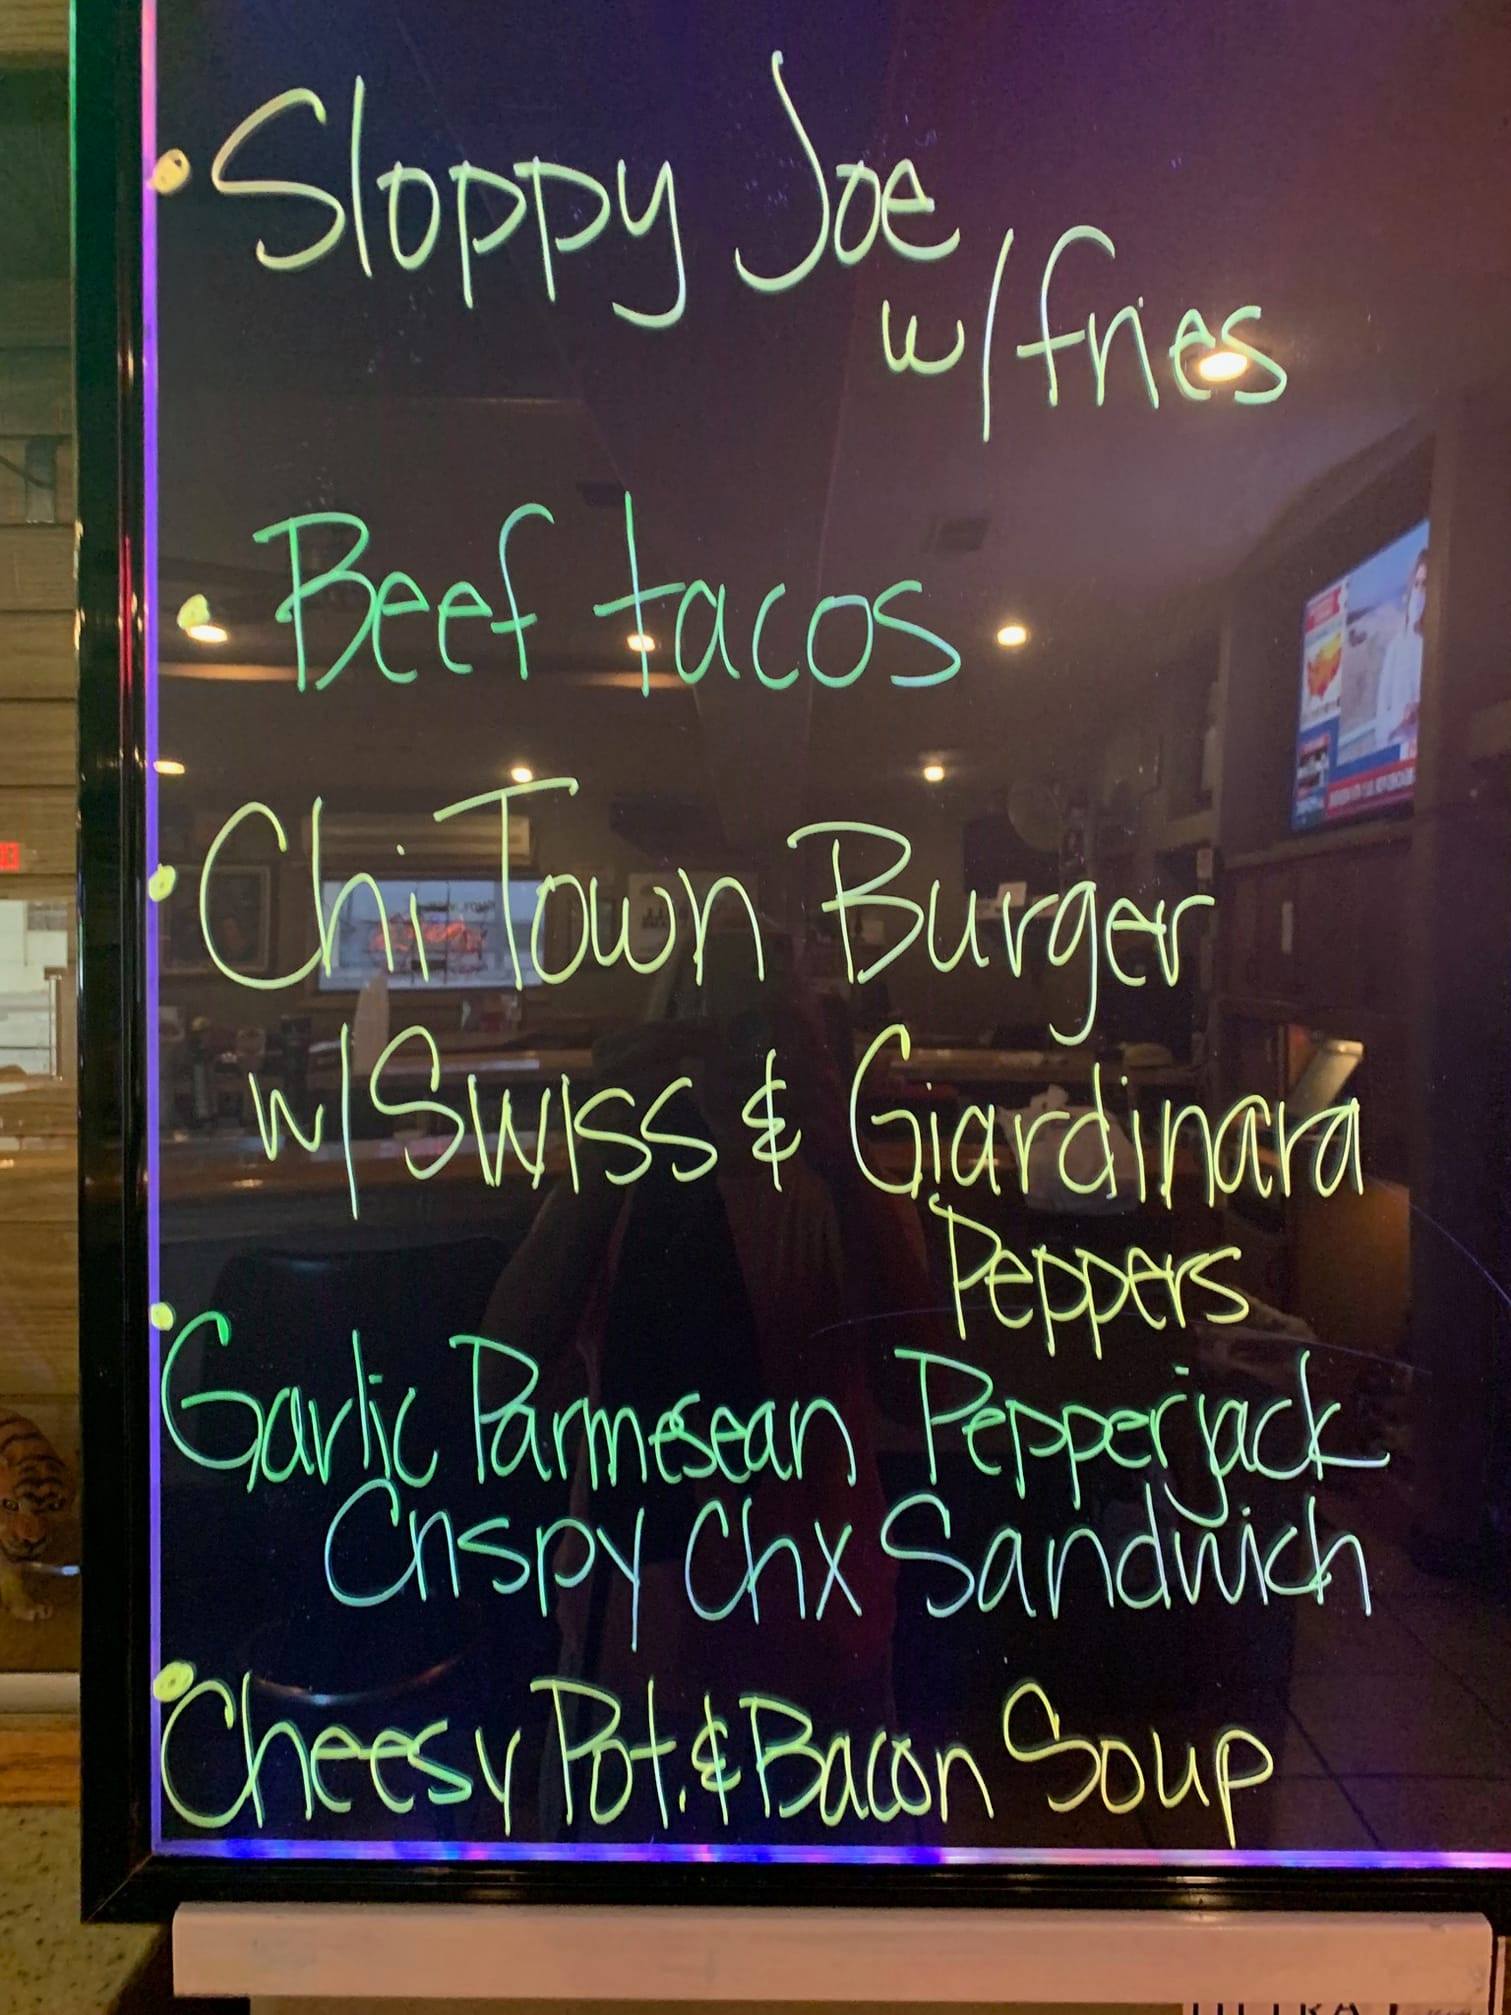 • Sloppy Joe
w/fries
• Beef tacos
• Chi Town Burger
w/Swiss & Giardinara
Peppers
• Garlic Parmesean Pepperjack
Crispy Chx Sandwich
• Cheesy Pot. & Bacon Soup